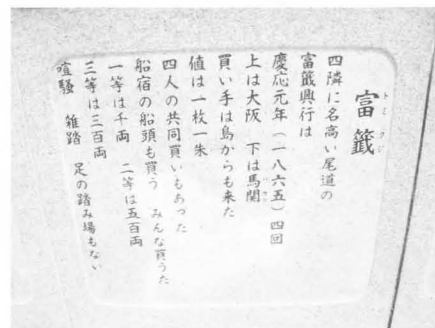 富籤
トミクジ
四隣に名高い尾道の
富籤興行は
慶応元年(一八六五)四回
上は大阪 下は馬関
買い手は島からも来た
値は一枚一朱
四人の共同買いもあった
船宿の船頭も買う みんな買うた
一等は千両 二等は五百両
三等は三百両
喧騒 雑踏 足の踏み場もない